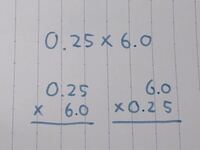 0.25 × 6.0
0.25
× 6.0
6.0
×0.25